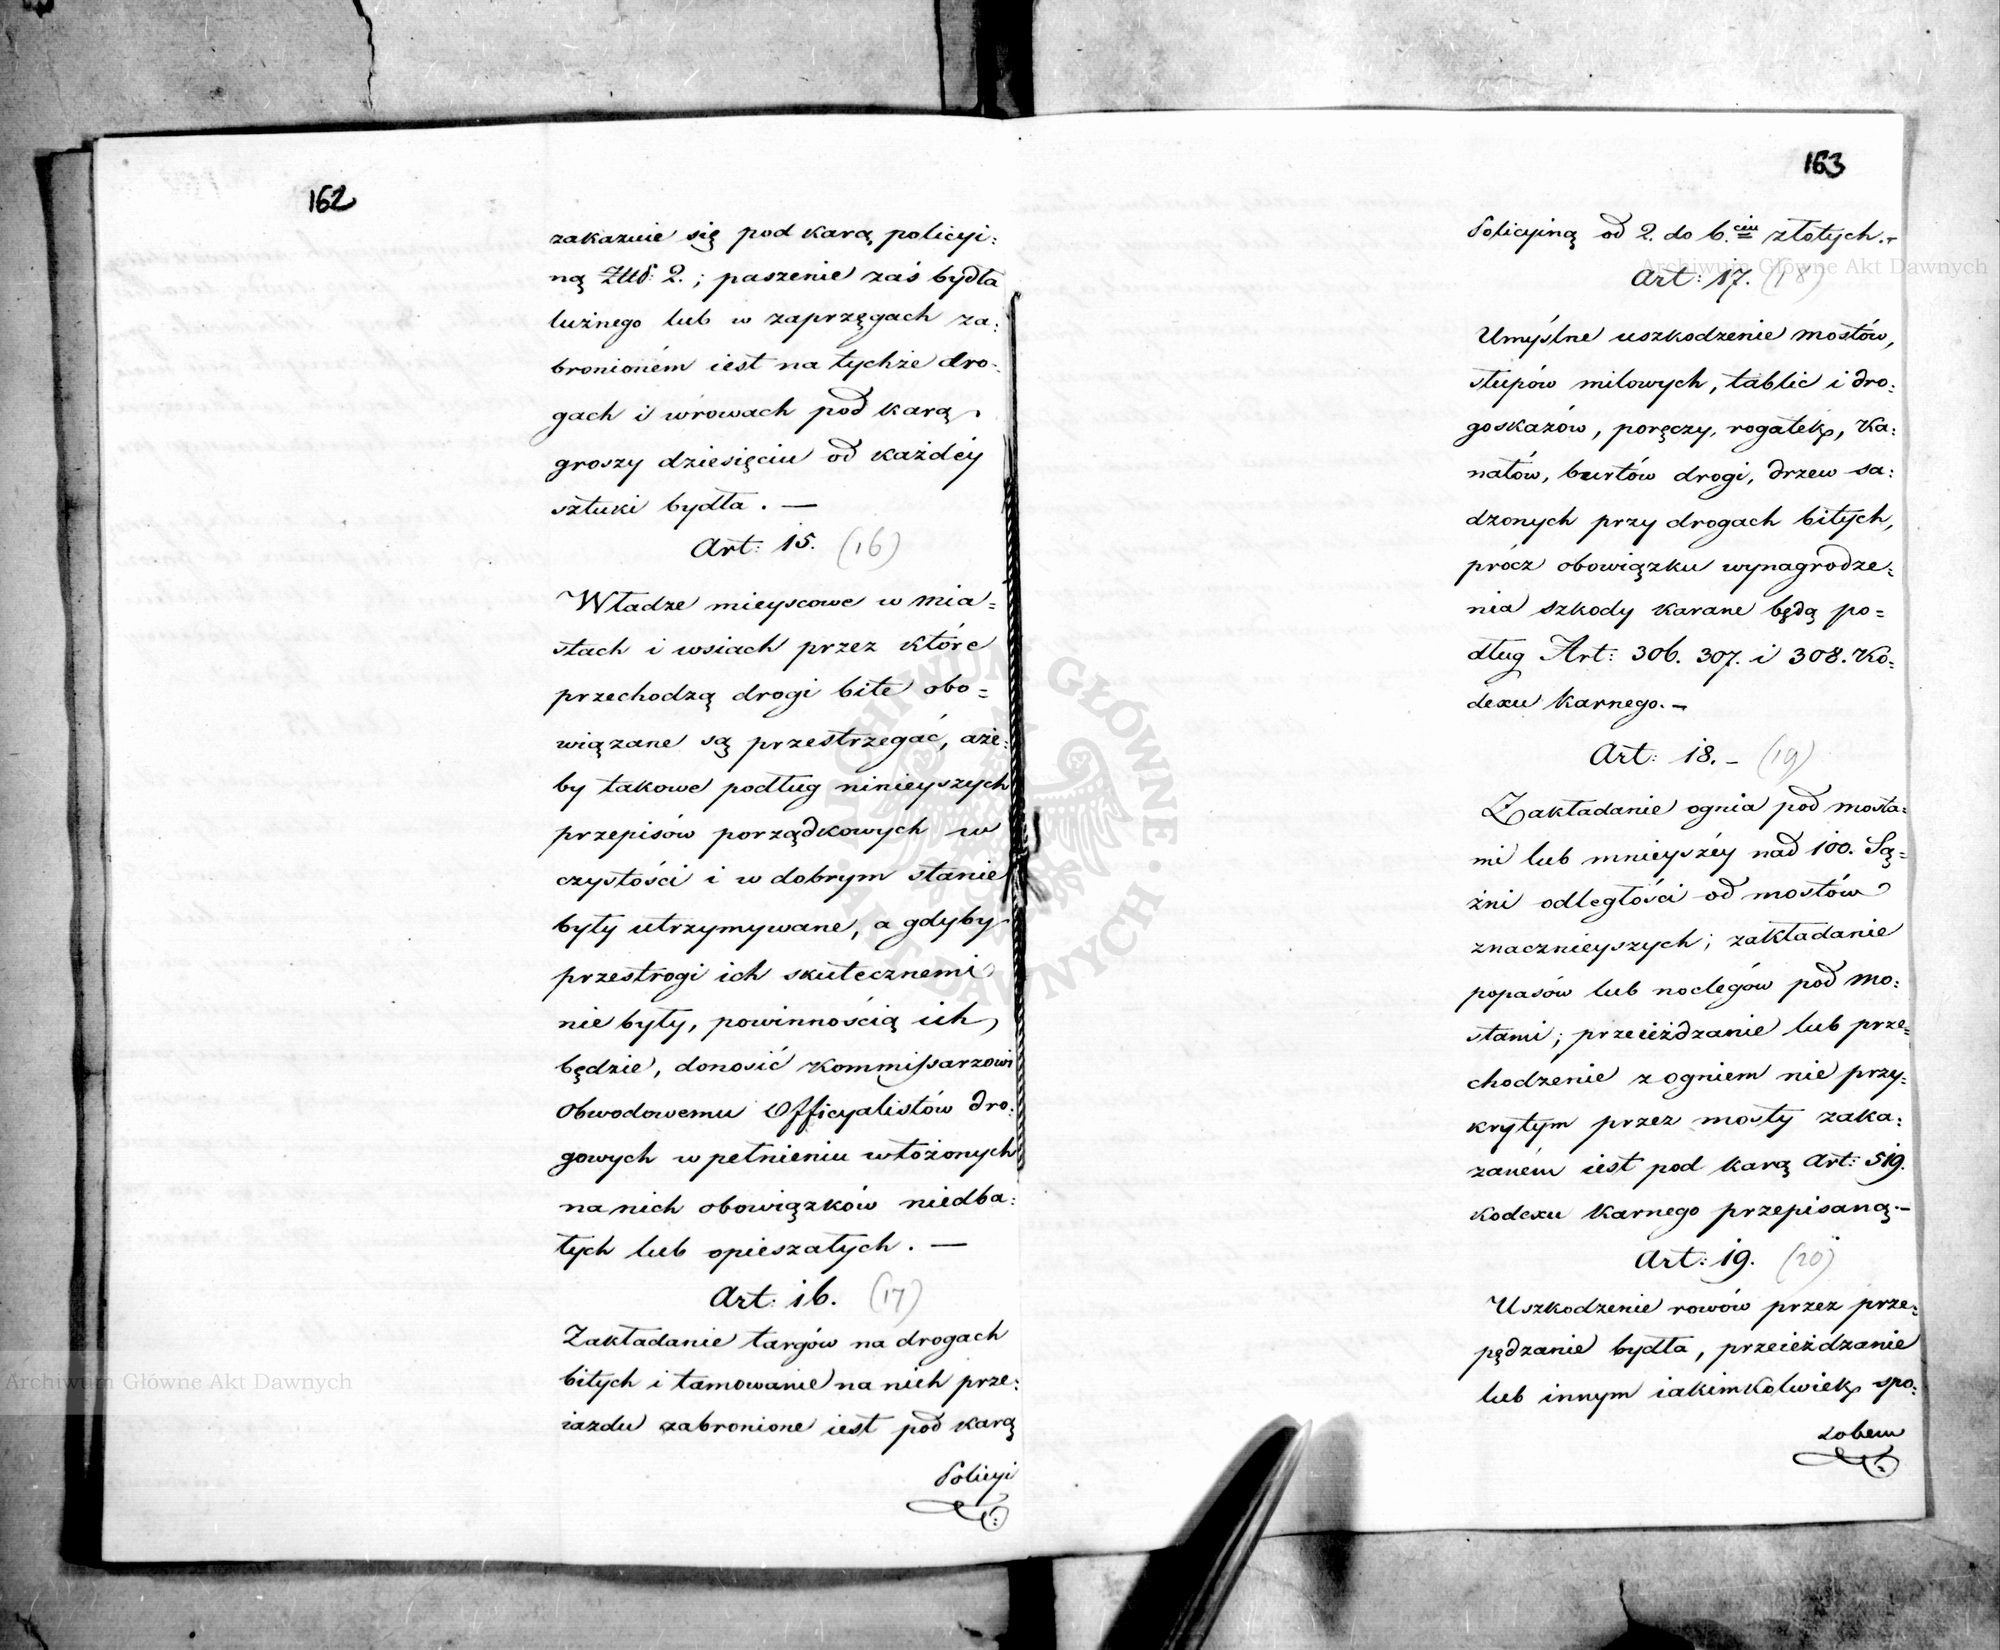 162
zakazuie się pod karą policyi:
ną Złł: 2.; paszenie zaś bydła
luźnego lub w zaprzęgach za:
bronioném iest na tychże dro:
gach i wrowach pod karą
groszy dziesięciu od każdéy
sztuki bydła. —
Art: 15. (16)
Władze mieyscowe w mia=
stach i wsiach przez które
przechodzą drogi bite obo=
wiązane są przestrzegać, aże:
by takowe podług ninieyszych
przepisów porządkowych w
czystości i w dobrym stanie
były utrzymywane, a gdyby
przestrogi ich skutecznemi
nie były, powinnością ich
będzie, donosić Kommissarzowi
Obwodowemu Officyalistów dro:
gowych w pełnieniu włożonych
na nich obowiązków niedba:
łych lub opieszałych. —
Art: 16. (17)
Zakładanie targów na drogach
bitych i tamowanie na nich prze:
iazdu zabronione iest pod karą
Policyi
163
Policyiną od 2. do 6.ciu złotych.-
Art: 17. (18)
Umyślne uszkodzenie mostów,
słupów milowych, tablic i dro:
goskazów, poręczy, rogatek, ka:
nałów, burtów drogi, drzew sa:
dzonych przy drogach bitych,
prócz obowiązku wynagrodze:
nia szkody karane będą po=
dług Art: 306. 307. i 308. Ko:
dexu Karnego. -
Art: 18. - (19)
Zakładanie ognia pod mosta:
mi lub mnieyszéy nad 100. Są=
żni odległości od mostów
znacznieyszych; zakładanie
popasów lub noclegów pod mo:
stami; przeieżdzanie lub prze=
chodzenie z ogniem nie przy:
krytym przez mosty zaka:
zaném iest pod karą Art: 519.
Kodexu Karnego przepisaną. -
Art: 19. (20)
Uszkodzenie rowów przez prze:
pędzanie bydła, przeieżdzanie
lub innym iakimkolwiek spo:
sobem
Archiwum Główne Akt Dawnych
Archiwum Główne Akt Dawnych
ARCHIWUM GŁÓWNE AKT DAWNYCH